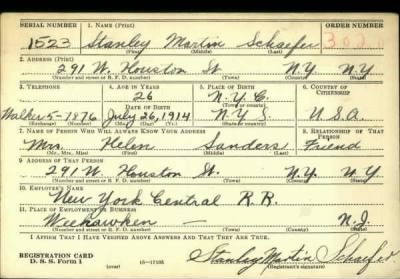 SERIAL NUMBER 1. NAME (Print) ORDER NUMBER
1523 Stanley Martin Schaefer
(First) (Middle) (Last)
2. ADDRESS (Print)
291 W. Houston St. N.Y. N.Y.
(Number and street or R. F. D. number) (Town) (County) (State)
3. TELEPHONE 4. AGE IN YEARS 5. PLACE OF BIRTH 6. COUNTRY OF CITIZENSHIP
26 N.Y.C.
DATE OF BIRTH (Town or county)
Walker 5-1876 July 26, 1914 N.Y.S. U.S.A.
(Exchange) (Number) (Mo.) (Day) (Yr.) (State or country)
7. NAME OF PERSON WHO WILL ALWAYS KNOW YOUR ADDRESS 8. RELATIONSHIP OF THAT PERSON
Mrs. Helen Sanders Friend
(Mr., Mrs., Miss) (First) (Middle) (Last)
9. ADDRESS OF THAT PERSON
291 W. Houston St. N.Y. N.Y.
(Number and street or R. F. D. number) (Town) (County) (State)
10. EMPLOYER'S NAME
New York Central R.R.
11. PLACE OF EMPLOYMENT OR BUSINESS
Weehawken N.J.
(Number and street or R. F. D. number) (Town) (County) (State)
I AFFIRM THAT I HAVE VERIFIED ABOVE ANSWERS AND THAT THEY ARE TRUE.
REGISTRATION CARD
D. S. S. Form 1 (over) 16-17105 Stanley Martin Schaefer
(Registrant's signature)